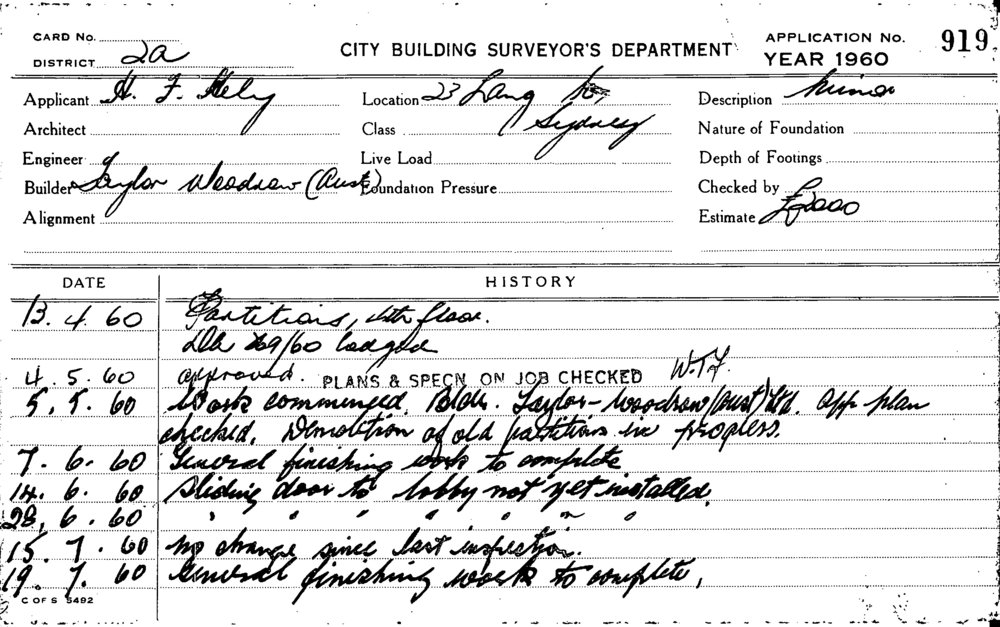 CARD No.
DISTRICT 2a
CITY BUILDING SURVEYOR'S DEPARTMENT
APPLICATION No. 919
YEAR 1960
Applicant H. F. Hely
Location 23 Lang St., Sydney
Description Minor
Architect
Class
Nature of Foundation
Engineer
Live Load
Depth of Footings
Builder Taylor Woodrow (Aust)
Foundation Pressure
Checked by
Alignment
Estimate £2000
DATE HISTORY
13. 4. 60 Partitions, 4th floor.
69/60 lodged
4. 5. 60 approved. PLANS & SPECN ON JOB CHECKED W.T.F.
5. 5. 60 Work commenced. Bldr. Taylor-Woodrow (Aust) Ltd. App. plan
checked. Demolition of old partitions in progress.
7. 6. 60 General finishing work to complete
14. 6. 60 Sliding door to lobby not yet installed.
28. 6. 60 " " " " " " "
15. 7. 60 No change since last inspection.
19. 7. 60 General finishing work to complete,
C OF S 5492